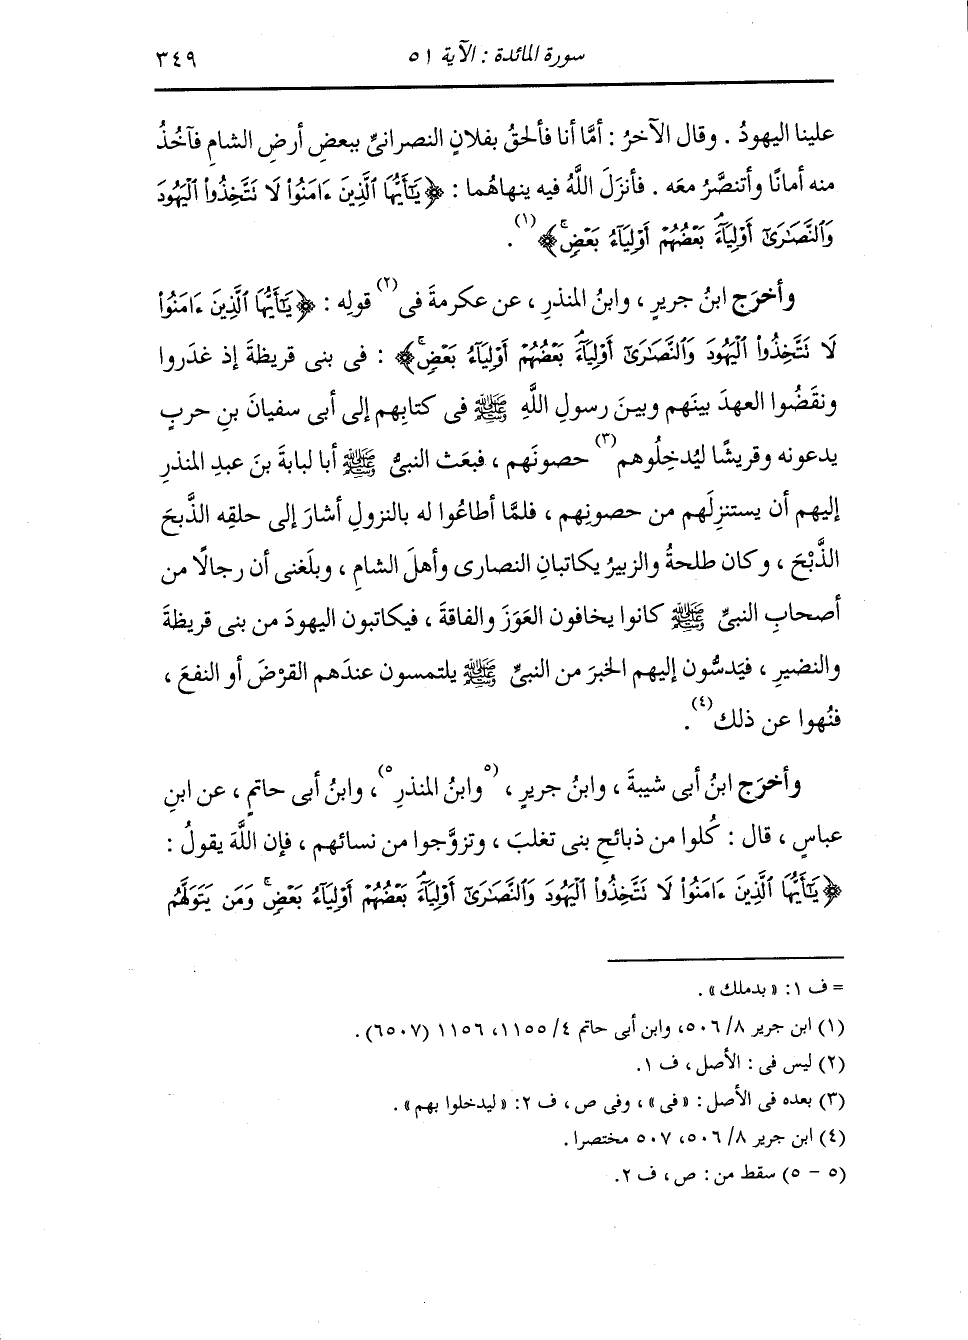 سورة المائدة : الآية ٥١ ٣٤٩
علينا اليهودُ . وقال الآخرُ : أمَّا أنا فألحقُ بفلانٍ النصرانىِّ ببعضِ أرضِ الشامِ فآخُذُ
منه أمانًا وأتنصَّرُ معَه . فأنزَل اللَّهُ فيه ينهاهُما : ﴿يَٰٓأَيُّهَا ٱلَّذِينَ ءَامَنُوا۟ لَا تَتَّخِذُوا۟ ٱلْيَهُودَ
وَٱلنَّصَٰرَىٰٓ أَوْلِيَآءَ ۘ بَعْضُهُمْ أَوْلِيَآءُ بَعْضٍ ۚ﴾(١) .
وأخرَج ابنُ جريرٍ ، وابنُ المنذرِ ، عن عكرمةَ فى(٢) قولِه : ﴿يَٰٓأَيُّهَا ٱلَّذِينَ ءَامَنُوا۟
لَا تَتَّخِذُوا۟ ٱلْيَهُودَ وَٱلنَّصَٰرَىٰٓ أَوْلِيَآءَ ۘ بَعْضُهُمْ أَوْلِيَآءُ بَعْضٍ ۚ﴾ : فى بنى قريظةَ إذ غدَروا
ونقَضُوا العهدَ بينَهم وبينَ رسولِ اللَّهِ ﷺ فى كتابِهم إلى أبى سفيانَ بنِ حربٍ
يدعونه وقريشًا ليُدخِلُوهم(٣) حصونَهم ، فبعَث النبىُّ ﷺ أبا لبابةَ بنَ عبدِ المنذرِ
إليهم أن يستنزِلَهم من حصونِهم ، فلمَّا أطاعُوا له بالنزولِ أشارَ إلى حلقِه الذَّبحَ
الذَّبْحَ ، وكان طلحةُ والزبيرُ يكاتبانِ النصارى وأهلَ الشامِ ، وبلَغنى أن رجالًا من
أصحابِ النبىِّ ﷺ كانوا يخافون العَوَزَ والفاقةَ ، فيكاتبون اليهودَ من بنى قريظةَ
والنضيرِ ، فيَدسُّون إليهم الخبرَ من النبىِّ ﷺ يلتمسون عندَهم القرْضَ أو النفعَ ،
فنُهوا عن ذلك(٤) .
وأخرَج ابنُ أبى شيبةَ ، وابنُ جريرٍ ، (٥وابنُ المنذرِ٥) ، وابنُ أبى حاتمٍ ، عن ابنِ
عباسٍ ، قال : كُلوا من ذبائحِ بنى تغلبَ ، وتزوَّجوا من نسائهم ، فإن اللَّهَ يقولُ :
﴿يَٰٓأَيُّهَا ٱلَّذِينَ ءَامَنُوا۟ لَا تَتَّخِذُوا۟ ٱلْيَهُودَ وَٱلنَّصَٰرَىٰٓ أَوْلِيَآءَ ۘ بَعْضُهُمْ أَوْلِيَآءُ بَعْضٍ ۚ وَمَن يَتَوَلَّهُم
= ف ١: « بدملك » .
(١) ابن جرير ٨/ ٥٠٦، وابن أبى حاتم ٤/ ١١٥٥، ١١٥٦ (٦٥٠٧) .
(٢) ليس فى : الأصل ، ف ١.
(٣) بعده فى الأصل : «فى» ، وفى ص ، ف ٢: «ليدخلوا بهم» .
(٤) ابن جرير ٨/ ٥٠٦، ٥٠٧ مختصرا .
(٥ - ٥) سقط من : ص ، ف ٢.